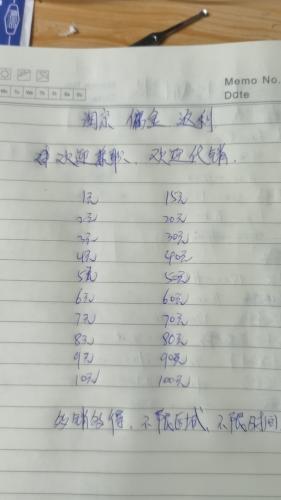 Memo No.
Date
Mo Tu We Th Fr Sa Su
淘宗 佣金 返利
欢迎兼职、欢迎代销.
1元 15元
2元 20元
3元 30元
4元 40元
5元 50元
6元 60元
7元 70元
8元 80元
9元 90元
10元 100元
多销多得、不限区域、不限时间